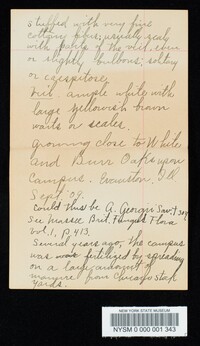 stuffed with very fine
cottony fibers, usually scaly
with parts of the veil, even
or slightly bulbous; solitary
or caespitose.
Veil. ample white with
large yellowish brown
warts or scales.
Growing close to White
and Burr Oaks upon
Campus. Evanston, Ill
Sept. 09.
Could this be A.
See Massee Brit. Fungus Flora
Vol. 1, p 413.
Several years ago, the campus
was fertilized by spreading
on a large amount of
manure from Chicago Stock
yards.
NEW YORK STATE MUSEUM
NYSM 0 000 001 343